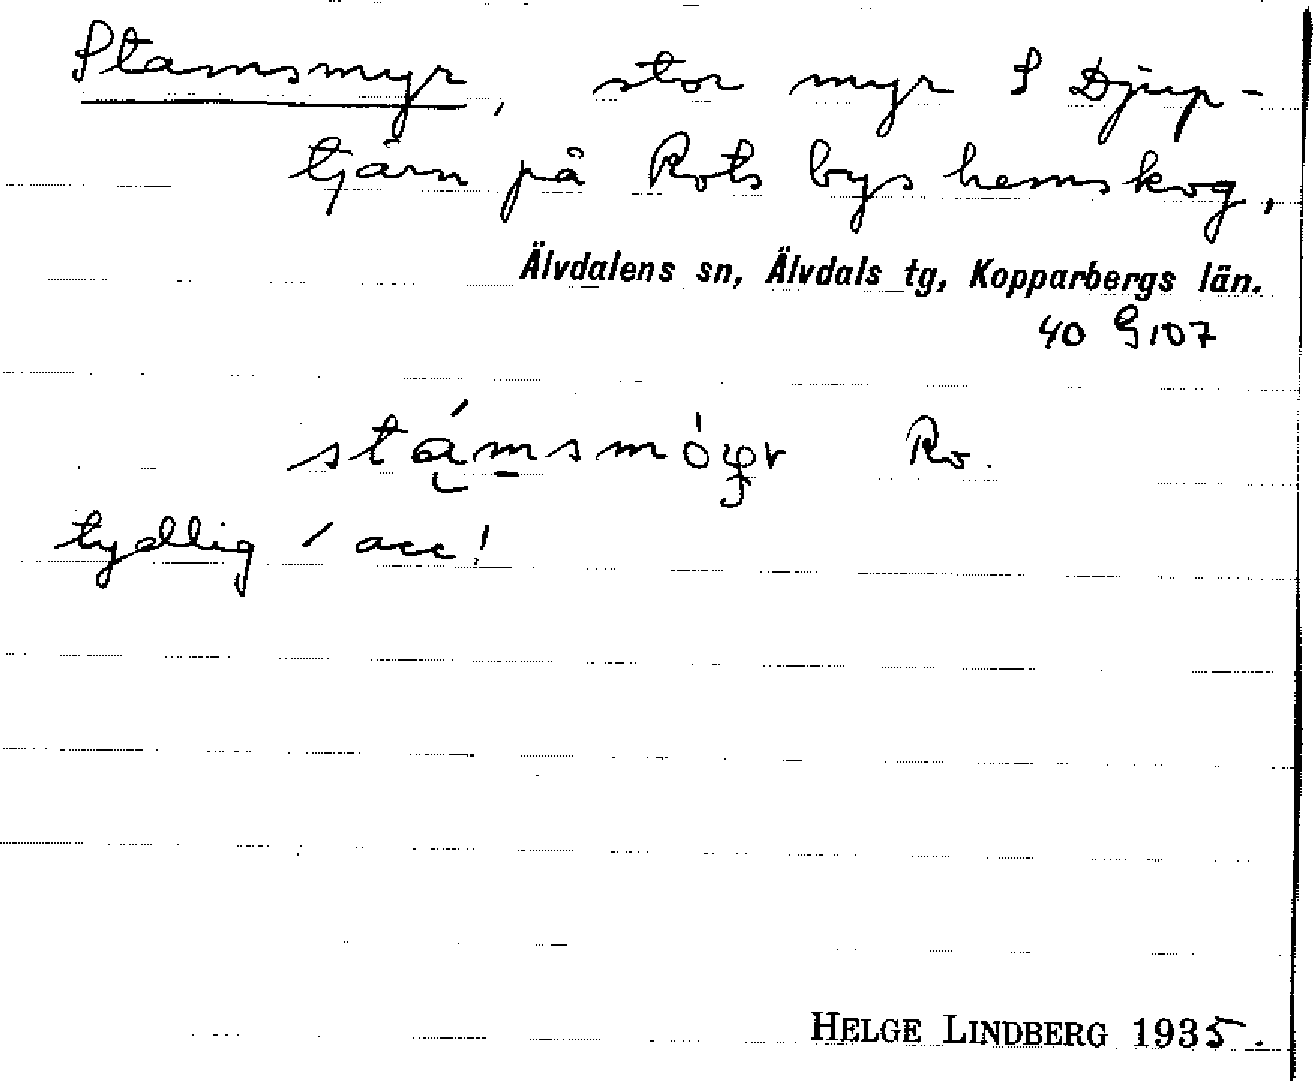 Stamsmyr, stor myr S Djup-
tjärn på Rots bys hemskog,
Älvdalens sn, Älvdals tg, Kopparbergs län.
40 G 107
Ro.
tydlig ´ acc!
HELGE LINDBERG 1935.